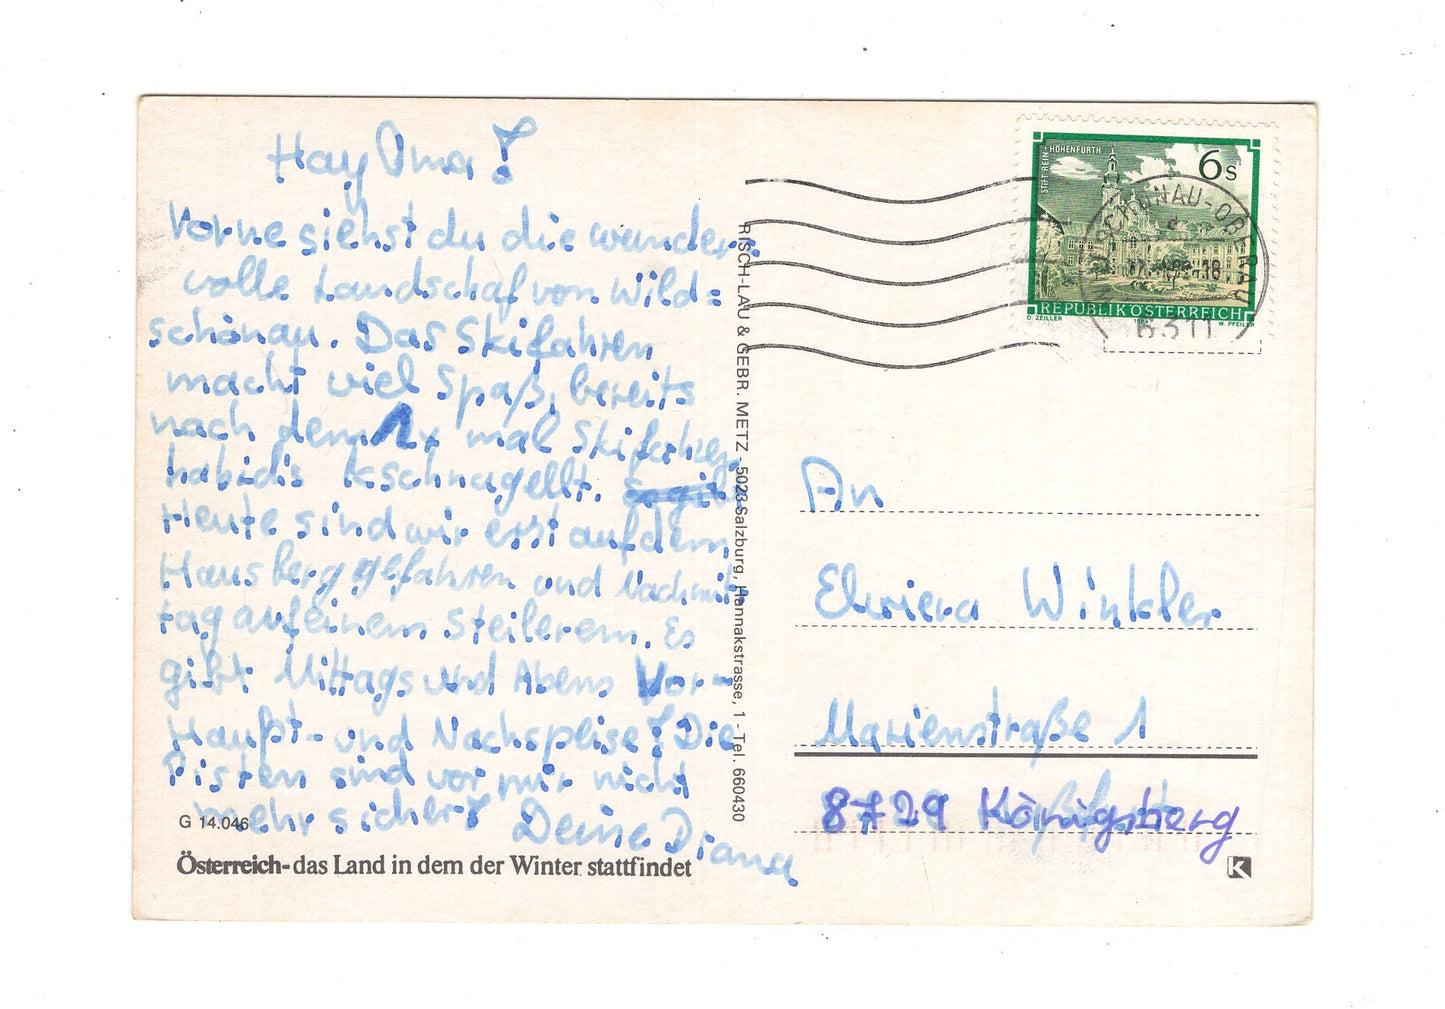 Hay Oma!
Vorne siehst du die wunder=
volle Landschaf von Wild=
schönau. Das Skifahren
macht viel Spaß, bereits
nach dem 1x mal Skifahren
habids kschnagellt.
Heute sind wir erst auf dem
Hausberg gefahren und Nachmit-
tag auf einem Steilerem. Es
gibt Mittags und Abens Vor-
Haußt- und Nachspeise! Die
Pisten sind vor mir nicht
mehr sicher! Deine Diana
G 14.046
Österreich-das Land in dem der Winter stattfindet
RISCH-LAU & GEBR. METZ - 5023 Salzburg, Hannakstrasse, 1 - Tel. 660430
STIFT REIN-HOHENFURTH
6 S
REPUBLIK ÖSTERREICH
O. ZEILER 1984 W. PFEILER
WILDSCHÖNAU-OBERAU
6311
An
Elwiera Winkler
Marienstraße 1
8729 Königsberg
K